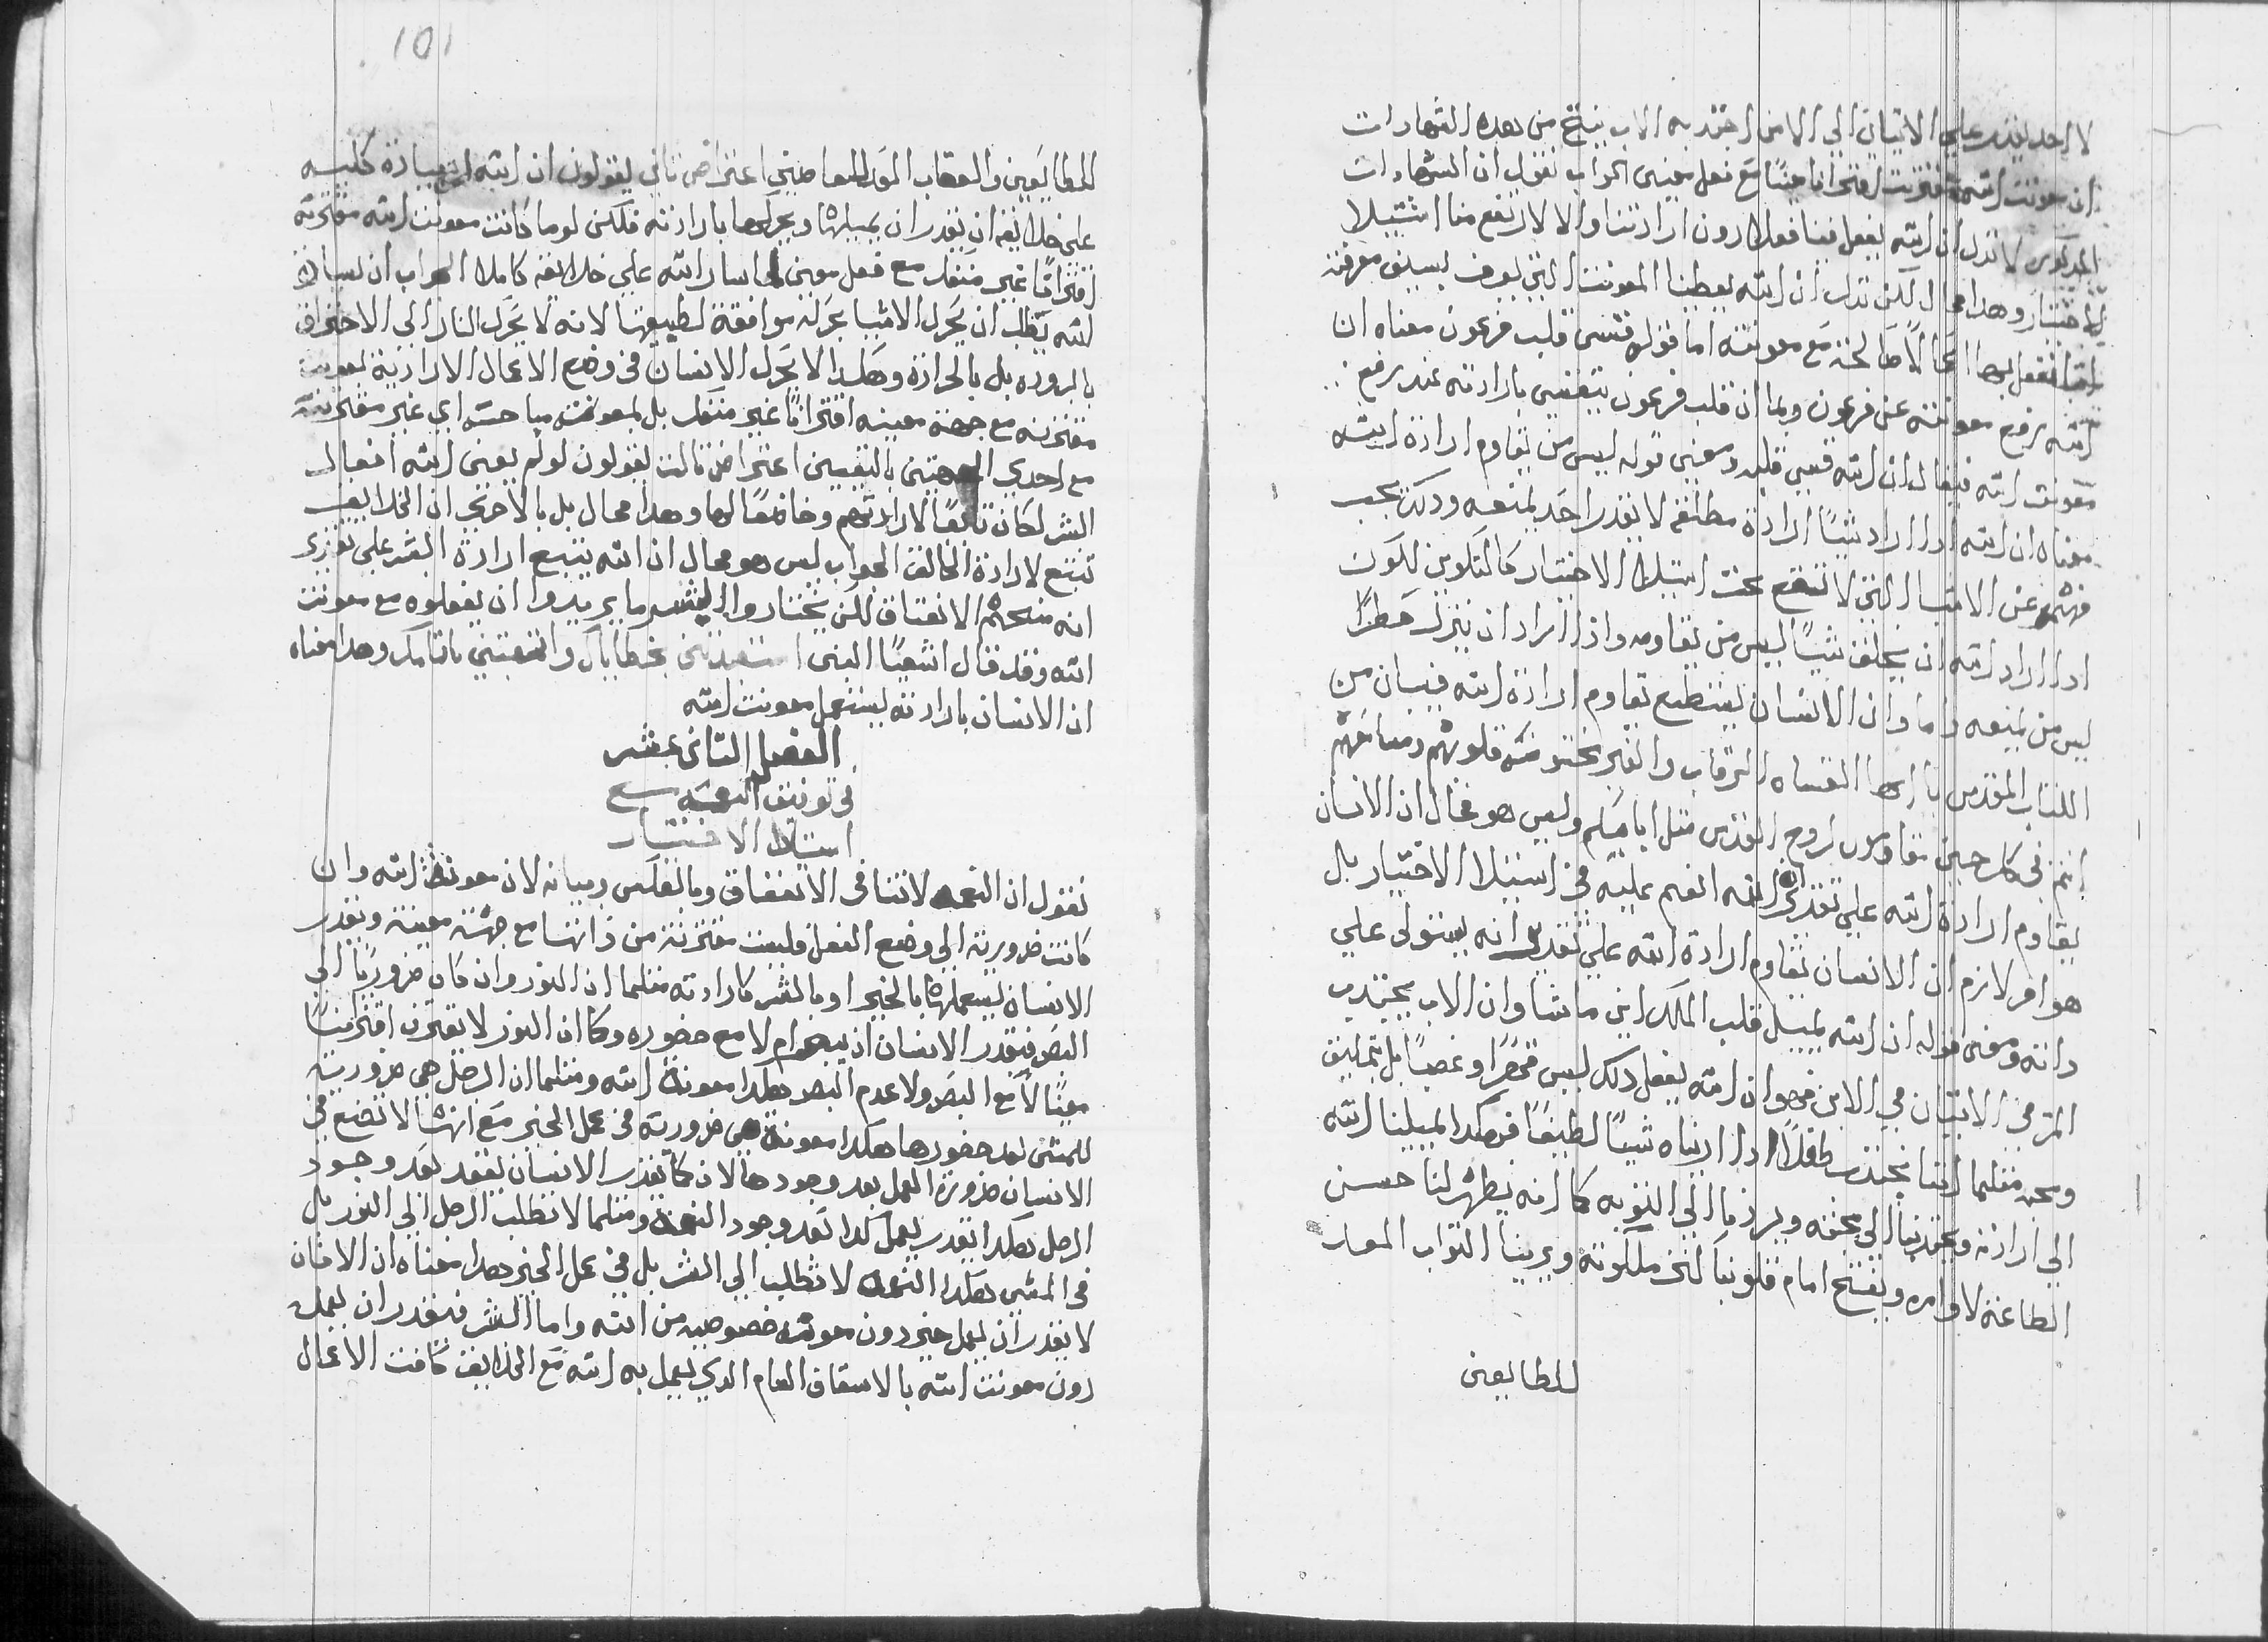 لا احد يقدر علي الاتيان الي الا من اجتذبه الاب ينتج من هذه الشهادات
ان معونت الله تقترن اقترانا معينًا مع فعل معين الجواب نقول ان الشهادات
المذكوره لا تدل ان الله يفعل فينا فعلا دون ارادتنا والا لارتفع منا استيلا
الاختيار وهذا محال لكن تدل ان الله يعطينا المعونت التي يعرف بسابق معرفته
اننا نفعل بها اعمالا صالحة مع معونته اما قوله قسي قلب فرعون معناه ان
الله رفع معونته عن فرعون وبما ان قلب فرعون يتقسي بارادته عند رفع
معونت الله فيقال ان الله قسي قلبه ومعني قوله ليس من يقاوم ارادة الله
معناه ان الله اذا اراد شيًا ارادة مطلقه لا يقدر احد يمنعه وذلك يجب
فهمه عن الاشيا التي لا تقع تحت استيلا الاختيار كالتكوين لكون
اذا اراد الله ان يخلق شيًا ليس من يقاومه واذا اراد ان ينزل مطرًا
ليس من يمنعه واما وان الانسان يستطيع يقاوم ارادة الله فبيان من
الكتاب المقدس يا ايها القساه الرقاب والغير مختونه قلوبهم ومسامعهم
انتم في كل حين تقاومون لروح القدس مثل ابايكم وليس هو محال ان الانسان
يقاوم ارادة الله علي تقدير انه انعم عليه في استيلا الاختيار بل
هو امر لازم ان الانسان يقاوم ارادة الله علي تقدير انه يستولي علي
ذاته ومعني قوله ان الله يميل قلب الملك اين ما شا وان الاب يجتذب
المر في الاتيان الي الابن فهو ان الله يفعل ذلك ليس قهرًا وغصبًا بل بتمليق
ومحبه مثلما اننا نجتذب طفلًا اذا اريناه شيًا لطيفًا فهكذا يميلنا الله
الي ارادته ويجتذبنا الي محبته ويردنا الي التوبه كما انه يظهر لنا حسن
الطاعة لاوامره ويفتح امام قلوبنا كنز ملكوته ويرينا الثواب المعد
للطايعين
101
للطايعين والعقاب الموبد للعاصيين اعتراض ثاني يقولون ان الله له سيادة كليه
علي خلايقه ان يقدر ان يميلها ويحركها بارادته فلكن لو ما كانت معونت الله مقترنه
اقترانًا غير منفك مع فعل معين لما ساد الله علي خلايقه كاملا الجواب ان سيادة
الله تطلب ان يحرك الاشيا حركه موافقة لطبيعتها لانه لا يحرك النار الي الاحتراق
بالبروده بل بالحرارة وهكذا لا يحرك الانسان في وضع الاعمال الارادية لمعونت
مقترنه مع جهة معينه اقترانًا غير منفك بل لمعونته مباحته اي غير مقترنته
مع احدي الجهتين بالتعيين اعتراض ثالث يقولون لو لم يعين الله افعال
البشر لكان تابعًا لارادتهم وخاضعًا لها وهذا محال بل بالاحري ان الخلايف
تتبع لارادة الخالق الجواب ليس هو محال ان الله يتبع ارادة البشر علي تقدير
انه منحهم الانعتاق لكن يختاروا البشر ما يريدوا ان يفعلوه مع معونت
الله وقد قال اشعيًا النبي استعبدتني بخطاياك واتعبتني باثامك وهذا معناه
ان الانسان بارادته يستعمل معونت الله
الفصل الثاني عشر
في توفيق النعمه مع
استيلا الاختيار
نقول ان النعمه لا تنافي الانعتاق وبالعكس وبيانه لان معونة الله وان
كانت ضرورية الي وضع الفعل فليست مقترنة من ذاتها مع جهة معينة ويقدر
الانسان يستعملها بالخير او بالشر كارادته مثلما ان النور وان كان ضروريًا الي
البصر فيقدر الانسان ان يبصر ام لا مع حضوره وكما ان النور لا يقترن اقترانًا
معينًا لا مع البصر ولا عدم البصر هكذا معونة الله ومثلما ان الرجل هي ضرورية
للمشي بعد حضورها هكذا معونة هي ضروريه في عمل الخير مع انها لا تضع في
الانسان ضرورة العمل بعد وجودها لان كما يقدر الانسان يقعد بعد وجود
الرجل هكذا يقدر يعمل كذا بعد وجود النعمة ومثلما لا تطلب الرجل الي النور بل
في المشي هكذا النعمه لا تطلب الي الشر بل في عمل الخير هذا معناه ان الانسان
لا يقدر ان يعمل خير دون معونة خصوصيه من الله واما الشر فيقدر ان يعمله
دون معونت الله بالاسعاف العام الذي يعمل به الله مع الخلايف كافت الاعمال